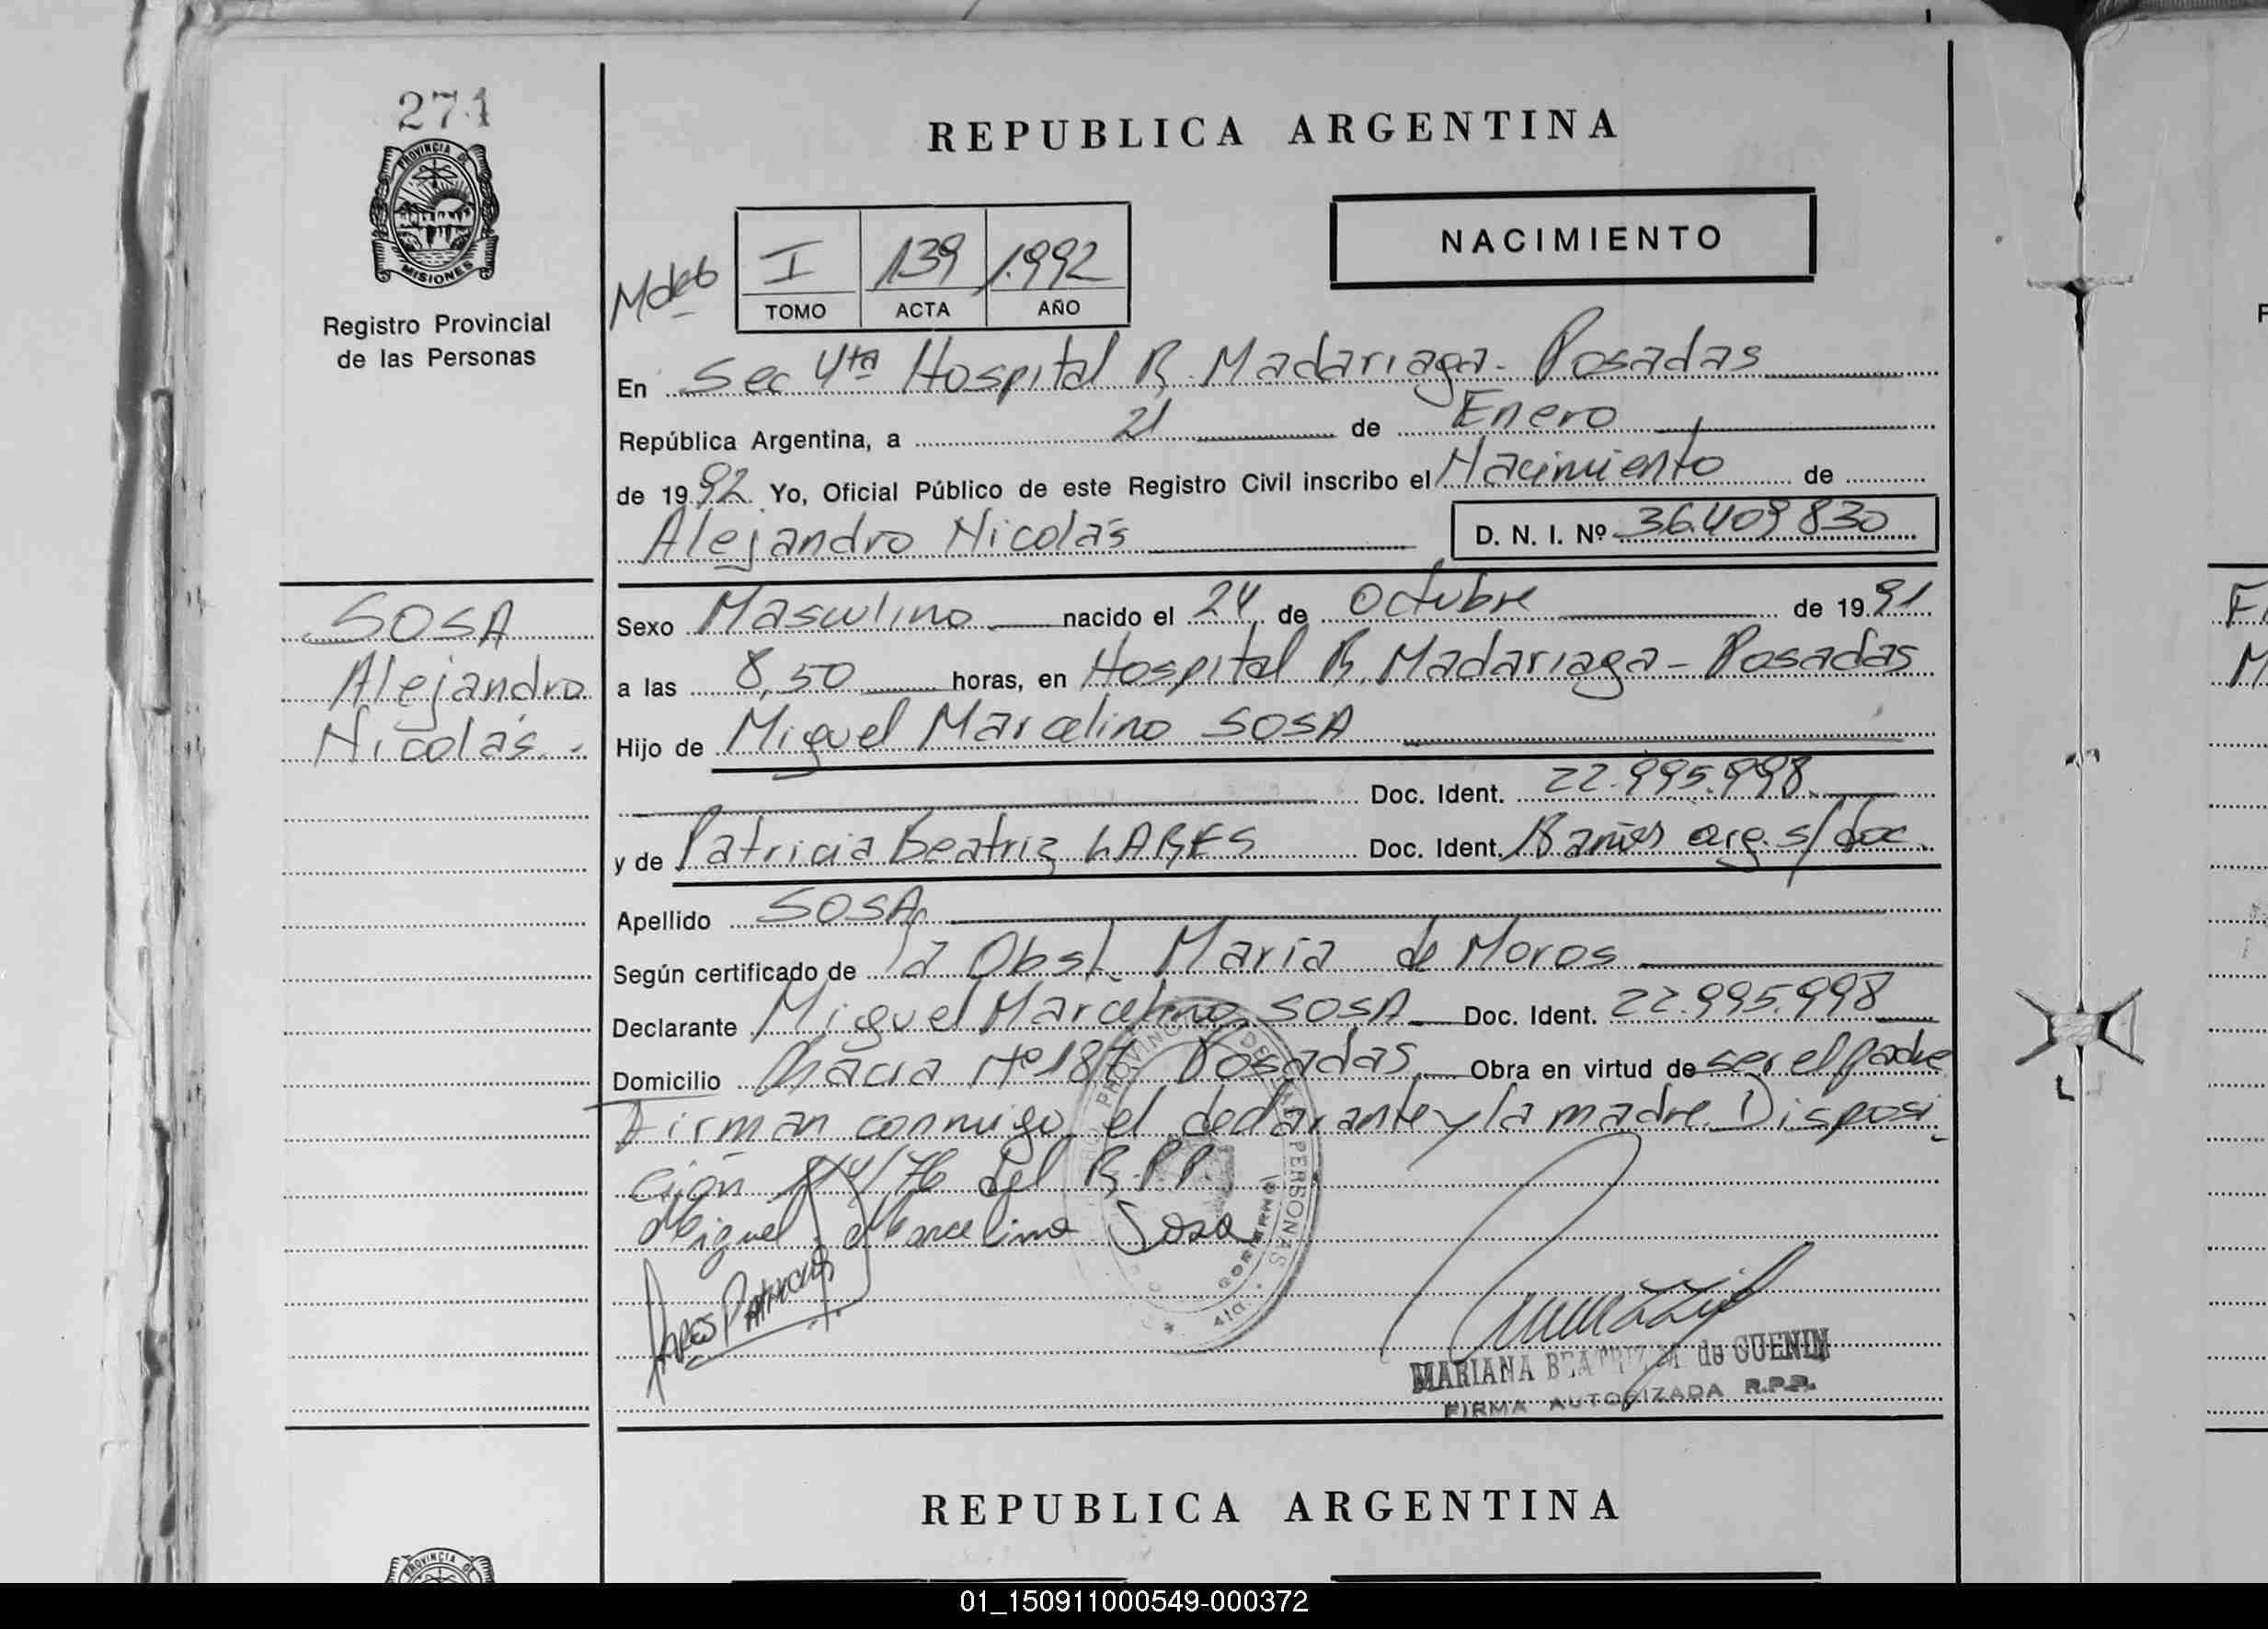 274
PROVINCIA DE
MISIONES
Registro Provincial
de las Personas
SOSA
Alejandro
Nicolás.-
REPUBLICA ARGENTINA
NACIMIENTO
I 139 1.992
TOMO ACTA AÑO
En Sec 4ta Hospital R. Madariaga - Posadas
República Argentina, a 21 de Enero
de 1992 Yo, Oficial Público de este Registro Civil inscribo el Nacimiento de
Alejandro Nicolás D. N. I. Nº 36.409.830
Sexo Masculino nacido el 24 de Octubre de 1991
a las 8,50 horas, en Hospital R. Madariaga - Posadas
Hijo de Miguel Marcelino SOSA
Doc. Ident. 22.995.998
y de Patricia Beatriz LARES Doc. Ident. 18 años arg. s/doc.
Apellido SOSA
Según certificado de la Obst. María de Moros
Declarante Miguel Marcelino SOSA Doc. Ident. 22.995.998
Domicilio Chacra Nº 187 Posadas. Obra en virtud de ser el padre
Firman conmigo el declarante y la madre. Disposi-
ción /76 del R.P.P
Miguel Marcelino Sosa
Lares Patricia
PROVINCIAL DE LAS PERSONAS
GOBIERNO
4ta.
MARIANA BEATRIZ M de GUENIN
FIRMA AUTORIZADA R.P.P.
REPUBLICA ARGENTINA
PROVINCIA DE
01_150911000549-000372